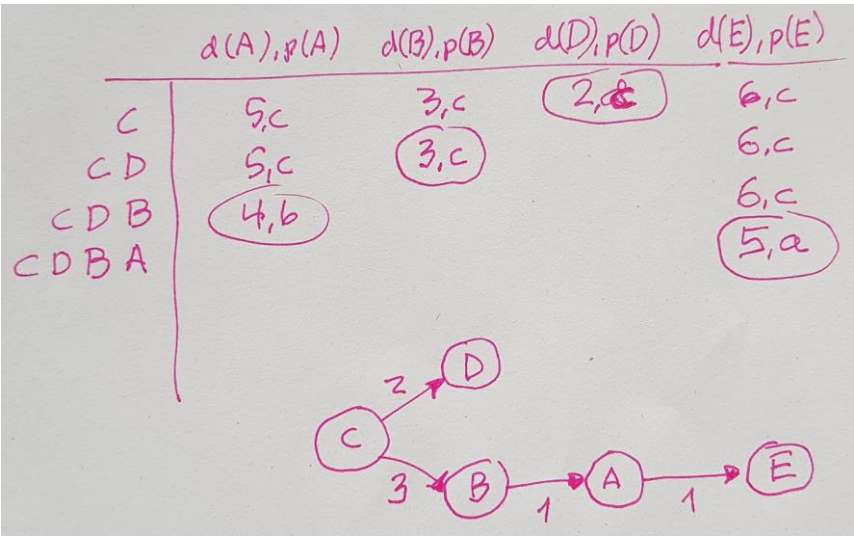 d(A),p(A) d(B),p(B) d(D),p(D) d(E),p(E)
C 5,c 3,c 2,c 6,c
CD 5,c 3,c 6,c
CDB 4,b 6,c
CDBA 5,a
D
2
C
3 B 1 A 1 E